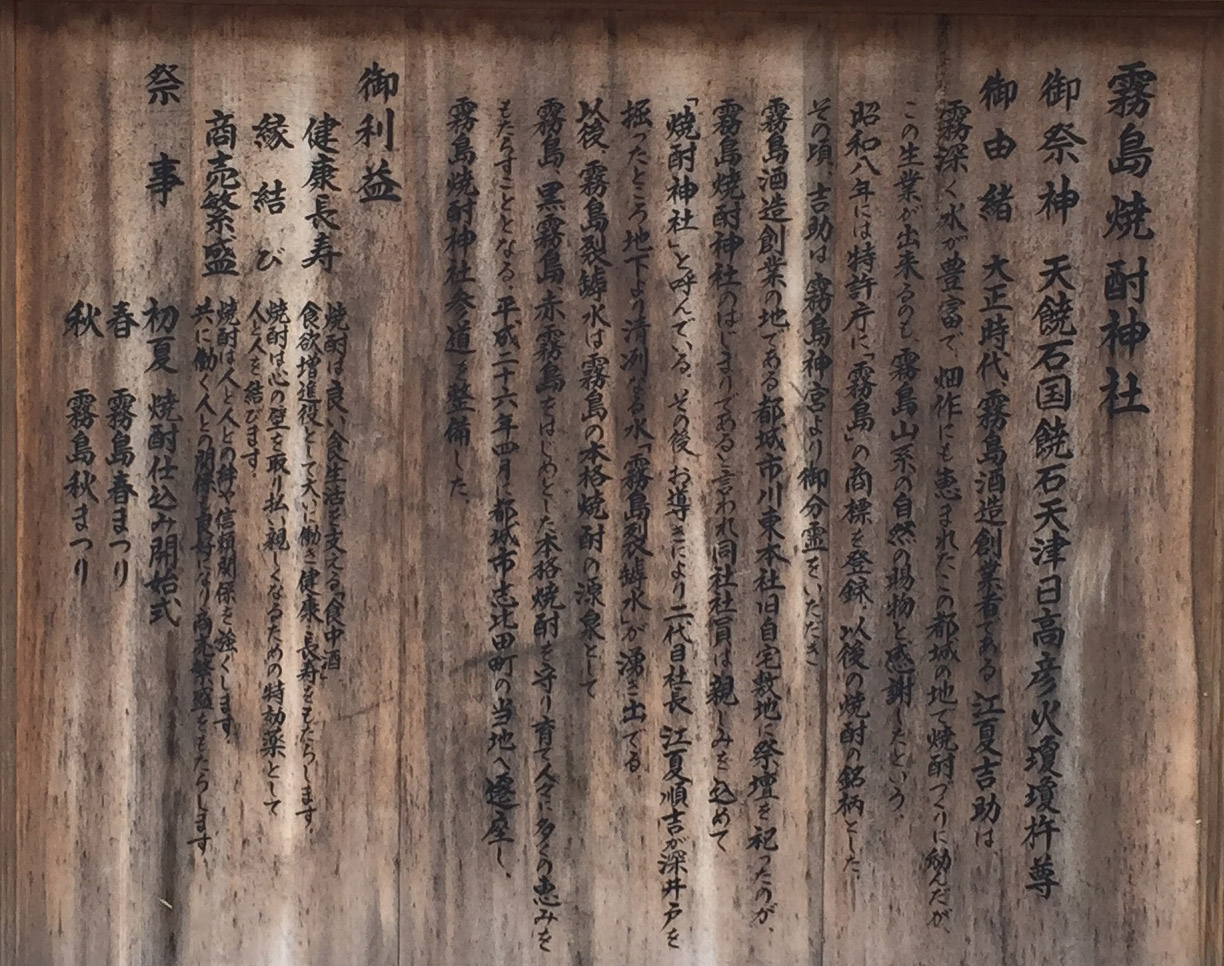 霧島焼酎神社
御祭神 天饒石国饒石天津日高彦火瓊瓊杵尊
御由緒 大正時代、霧島酒造創業者である 江夏吉助は
霧深く水が豊富で 畑作にも恵まれたこの都城の地で焼酎づくりに励んだが、
この生業が出来るのも、霧島山系の自然の賜物と感謝したという。
昭和八年には特許庁に「霧島」の商標を登録、以後の焼酎の銘柄とした。
その頃、吉助は 霧島神宮より御分霊をいただき
霧島酒造創業の地である都城市川東本社旧自宅敷地に祭壇を祀ったのが、
霧島焼酎神社のはじまりであると言われ同社社員は親しみを込めて
「焼酎神社」と呼んでいる。その後、お導きにより二代目社長 江夏順吉が深井戸を
掘ったところ地下より清冽なる水「霧島裂罅水」が湧き出でる
以後、霧島裂罅水は霧島の本格焼酎の源泉として
霧島、黒霧島、赤霧島をはじめとした本格焼酎を守り育て人々に多くの恵みを
もたらすこととなる。平成二十六年四月に都城市志比田町の当地へ遷座し、
霧島焼酎神社参道を整備した。
御利益
健康長寿 焼酎は良い食生活を支える「食中酒」
食欲増進役として大いに働き健康・長寿をもたらします。
縁結び 焼酎は心の壁を取り払い親しくなるための特効薬として
人と人を結びます。
商売繁盛 焼酎は人と人との絆や信頼関係を強くします。
共に働く人との関係も良好になり商売繁盛をもたらします。
祭事 初夏 焼酎仕込み開始式
春 霧島春まつり
秋 霧島秋まつり